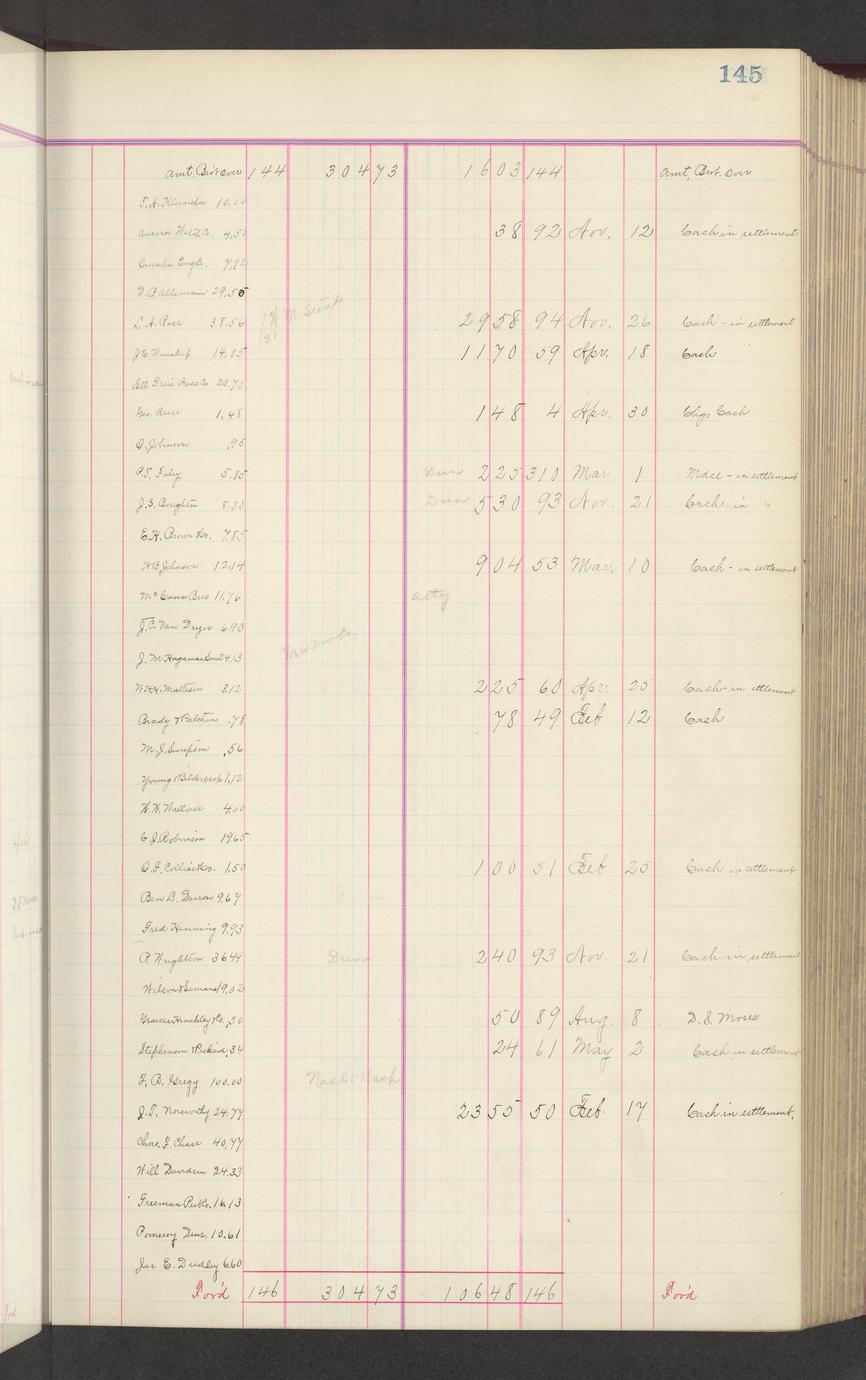 145
Amt, Brt over 144 304 73 1603 144 Amt, Brt. over
T. A. 10.00
Aurora Watch Co. 4.50 38 92 Nov. 12 Cash in settlement
Omaha Eng Co. 7.82
29.55
L. A. 38.56 2958 94 Nov. 26 Cash - in settlement
31
J. E. Winship 14.85 1170 59 Apr. 18 Cash
20.75
Geo. 1.48 148 4 Apr. 30 Chgs Cash
O. Johnson .95
P. T. Foley 5.85 Dun 225 310 Mar 1 Mdse - in settlement
J. S. Boughton 8.30 Dun 530 93 Nov. 21 Cash - in "
E. H. Brown & Co. 7.85
H B Johnson 12.14 904 53 Mar. 10 Cash - in settlement
McCann Bros 11.76 atty
J. C. Van Duyn 6.90
J. M. Hagaman 24.13
W. H. H. Matteson 3.12 225 60 Apr. 25 Cash - in settlement
Brady & .78 78 49 Feb 12 Cash
M. J. Simpson .56
Young & Bilderbeck 1.12
W. W. Wallace 4.00
C. J. Robinson 19.65
O. F. Collier & Co. 1.50 100 51 Feb 25 Cash in settlement
Ben L. Darrow 9.67
Fred Henning 9.93
A. Wrighton 36.49 Dun 240 93 Nov. 21 Cash in settlement
Wilson & 19.02
Hinckley & Co. .50 50 89 Aug. 8 D. S. Morse
Stephenson & Pickard .34 24 61 May 2 Cash in settlement
F. B. Gregg 100.00 Nash
J. T. Norworthy 24.77 2355 50 Feb. 17 Cash in settlement.
Chas. F. Chase 40.77
Will Davidson 24.33
Freeman Pub Co. 16.13
Pomeroy Dem. 10.61
Jas E. Dudley 6.60
For'd 146 304 73 10648 146 For'd